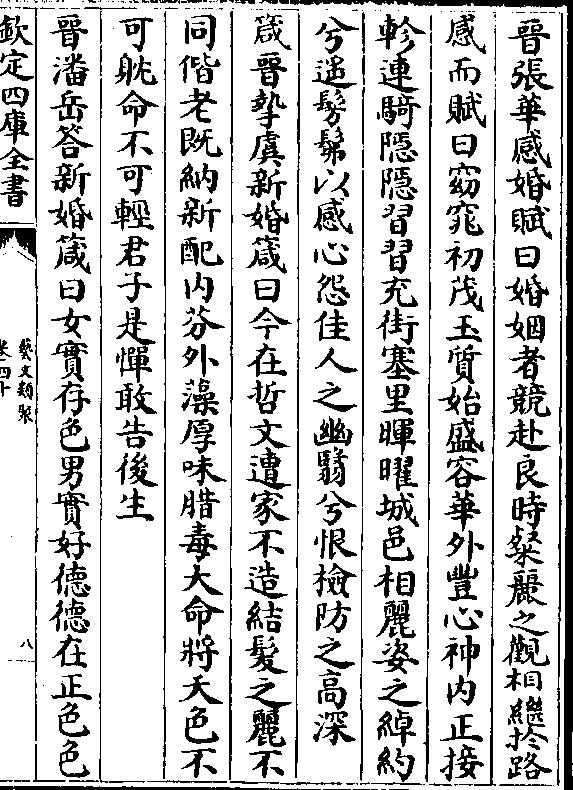 晉張華感婚賦曰婚姻者競赴良時粲麗之觀相繼於路
感而賦曰窈窕初茂玉質始盛容華外豐心神内正接
軫連騎隱隱習習充街塞里暉曜城邑相麗姿之綽約
兮遥髣髴以感心怨佳人之幽翳兮恨檢防之高深
箴晉摯虞新婚箴曰今在哲文遭家不造結髮之麗不
同偕老既納新配内芬外藻厚味腊毒大命將夭色不
可躭命不可輕君子是憚敢告後生
晉潘岳答新婚箴曰女實存色男實好德德在正色色
欽定四庫全書
藝文類聚
卷四十
八